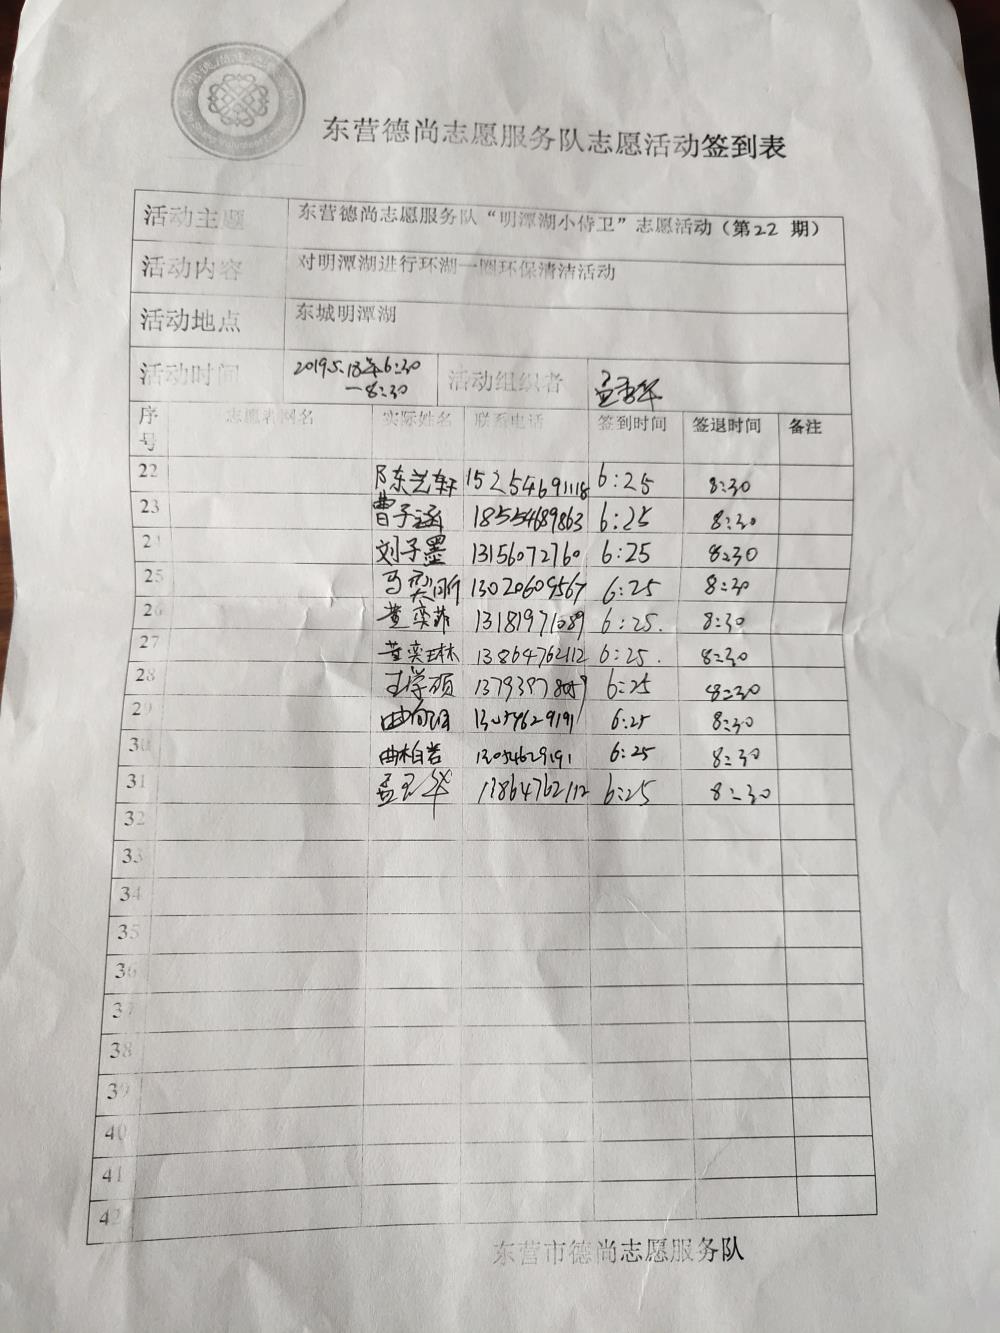 东营德尚志愿服务队志愿活动签到表
活动主题 东营德尚志愿服务队“明潭湖小侍卫”志愿活动（第22 期）
活动内容 对明潭湖进行环湖一圈环保清洁活动
活动地点 东城明潭湖
活动时间 2019.5.18 6:30 —8:30 活动组织者
序号 志愿者网名 实际姓名 联系电话 签到时间 签退时间 备注
22 陈艺轩 15254691118 6:25 8:30
23 曹子涵 18554689863 6:25 8:30
24 刘子墨 13156072760 6:25 8:30
25 马 13020609567 6:25 8:30
26 董奕菲 13181971089 6:25. 8:30
27 董奕琳 13864762112 6:25. 8:30
28 王学硕 6:25 8:30
29 曲 13054629191 6:25 8:30
30 曲柏岩 13054629191 6:25 8:30
31 孟 13864762112 6:25 8:30
32
33
34
35
36
37
38
39
40
41
42
东营市德尚志愿服务队